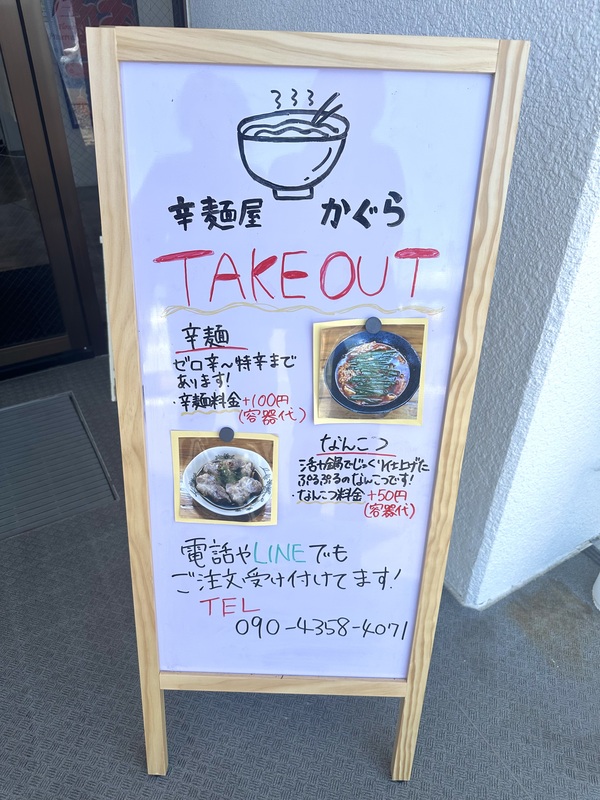 辛麺屋 かぐら
TAKEOUT
辛麺
ゼロ辛～特辛まで
あります!
・辛麺料金+100円
(容器代)
なんこつ
活力鍋でじっくり仕上げた
ぷるぷるのなんこつです!
・なんこつ料金+50円
(容器代)
電話やLINEでも
ご注文受け付けてます!
TEL
090-4358-4071